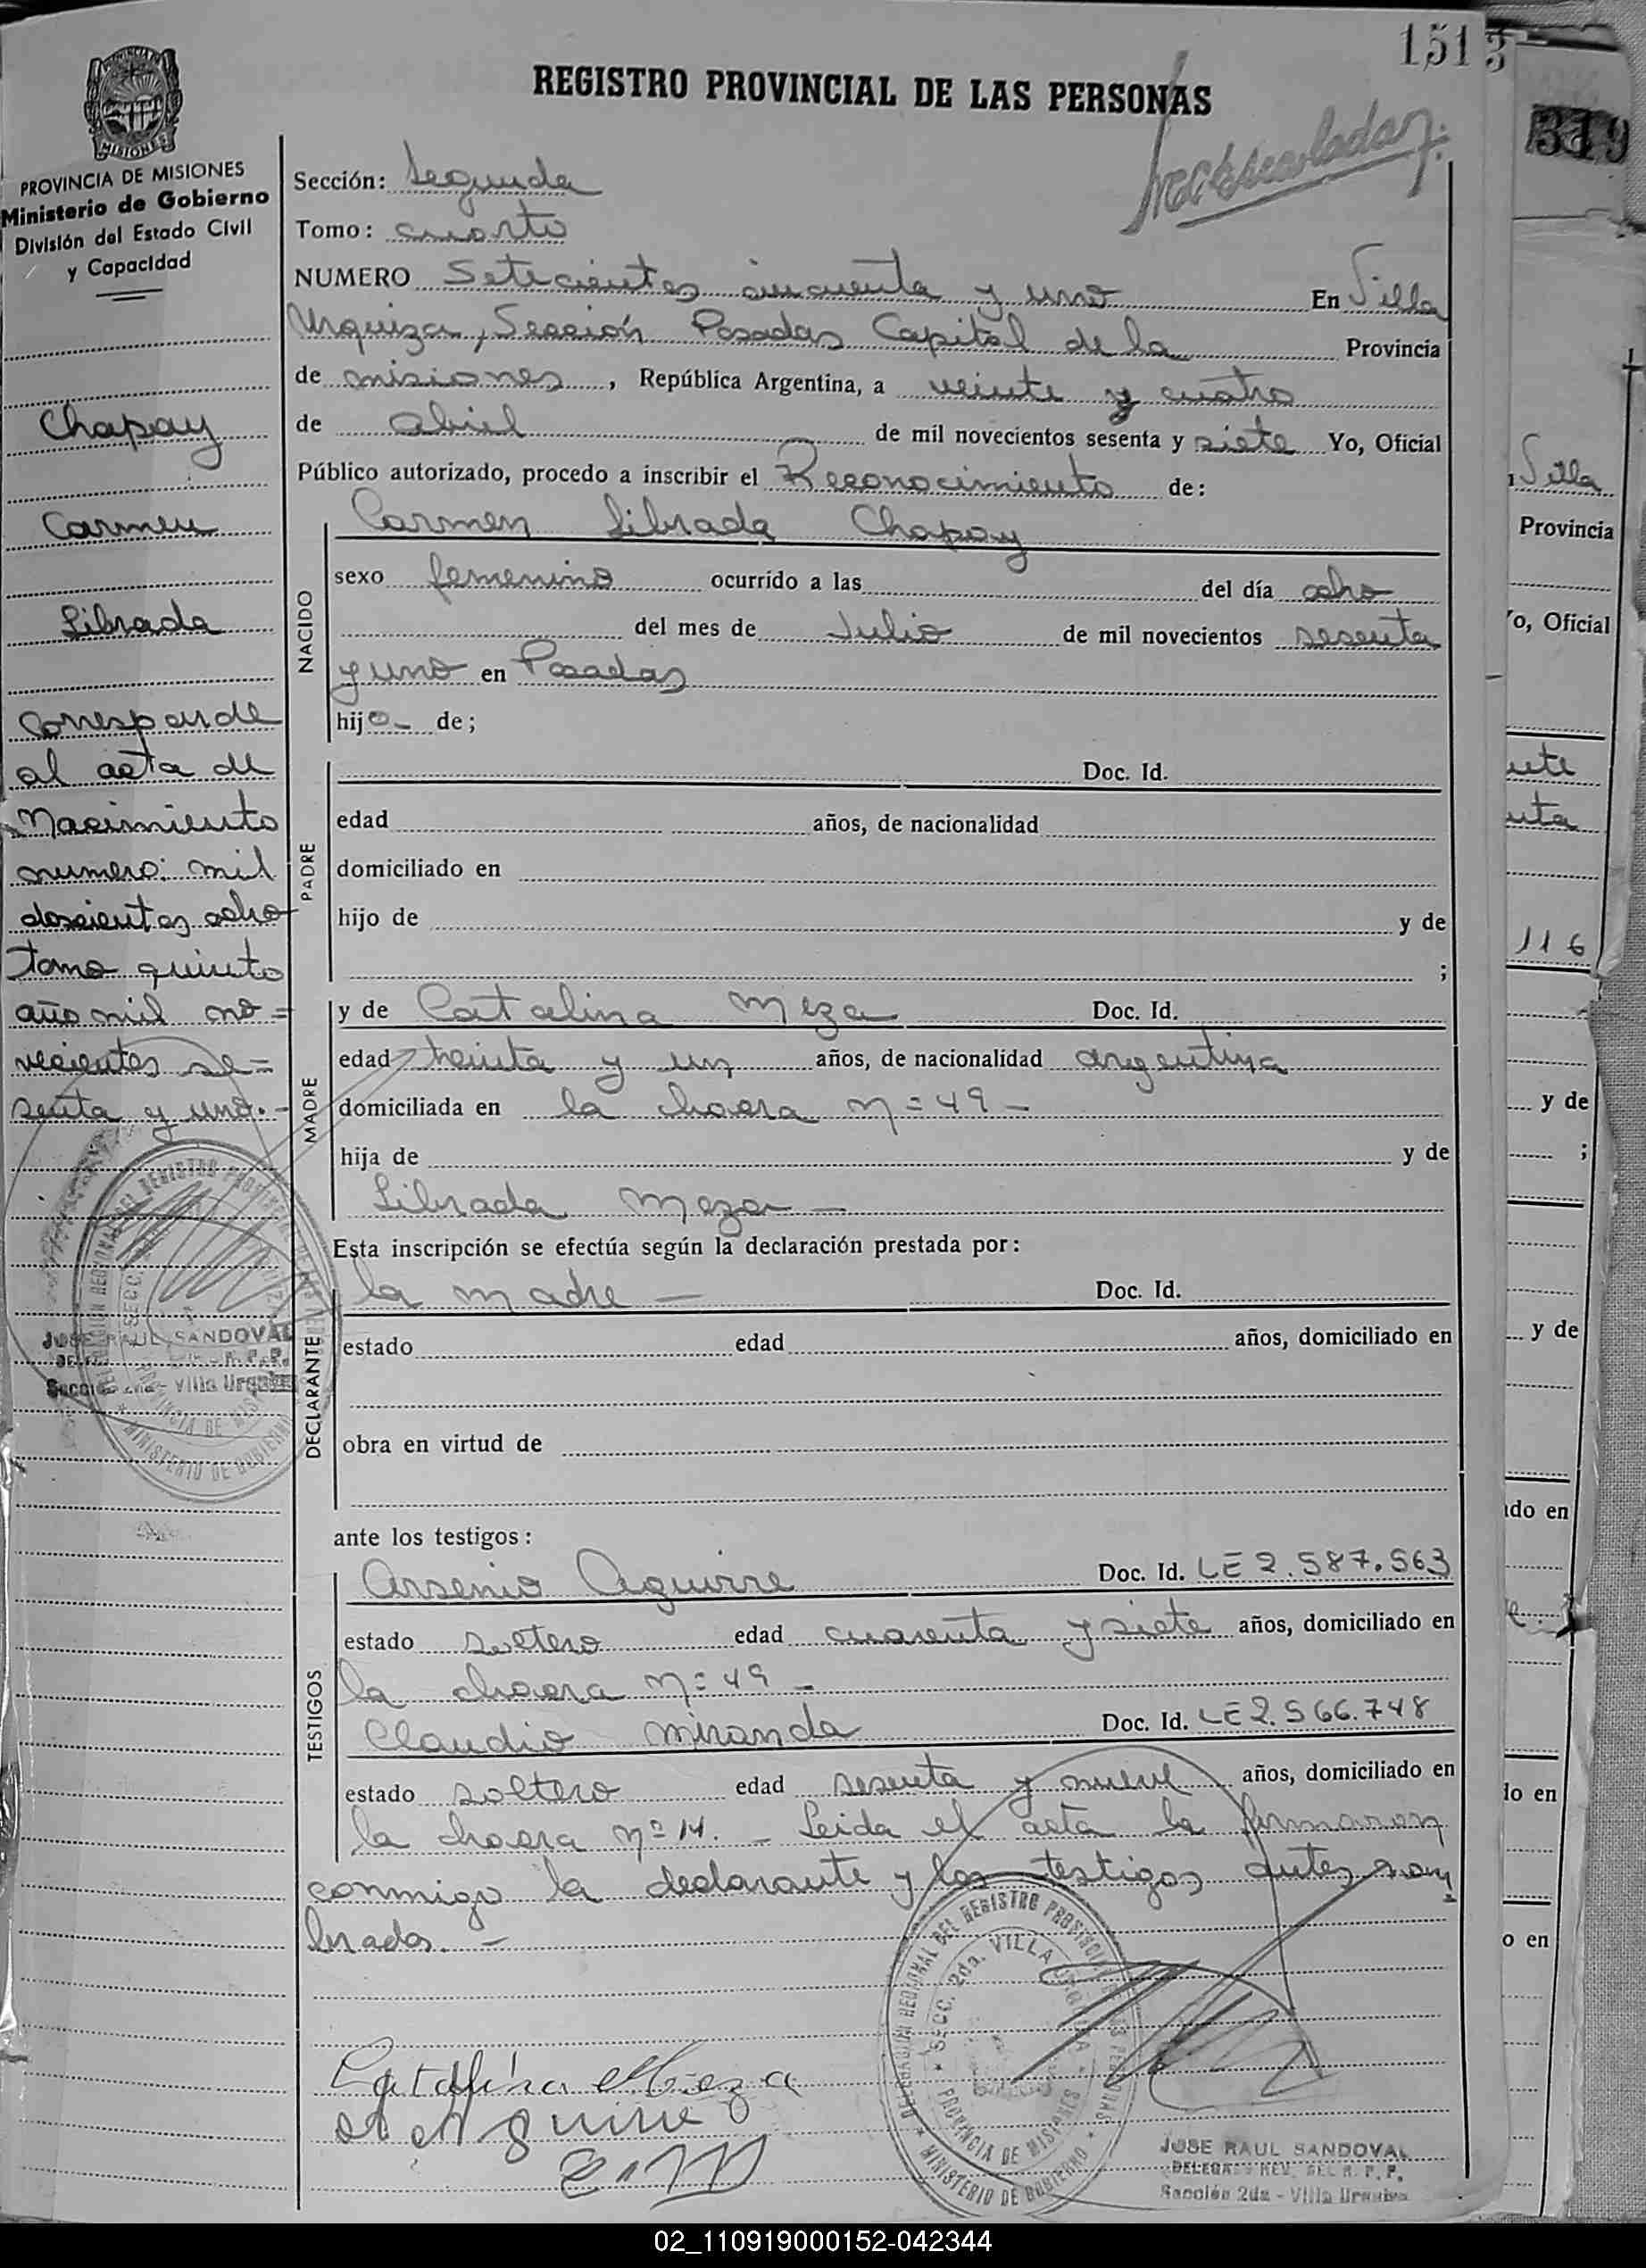 1513
REGISTRO PROVINCIAL DE LAS PERSONAS
PROVINCIA DE MISIONES
MISIONES
Ministerio de Gobierno
División del Estado Civil
y Capacidad
Chapay
Carmen
Librada
Corresponde
al acta de
Nacimiento
numero: mil
doscientos ocho
Tomo quinto
año mil no=
vecientos se=
senta y uno.-
JOSE RAUL SANDOVAL
Sección 2da - Villa Urquiza
Sección: Segunda
Tomo: cuarto
NUMERO Setecientos cincuenta y uno En Villa
Urquiza, Sección Posadas Capital de la Provincia
de misiones, República Argentina, a veinte y cuatro
de abril de mil novecientos sesenta y siete Yo, Oficial
Público autorizado, procedo a inscribir el Reconocimiento de:
NACIDO
Carmen Librada Chapay
sexo femenino ocurrido a las del día ocho
del mes de Julio de mil novecientos sesenta
y uno en Posadas
hijo- de;
PADRE
Doc. Id.
edad años, de nacionalidad
domiciliado en
hijo de y de
;
MADRE
y de Catalina Meza Doc. Id.
edad treinta y un años, de nacionalidad argentina
domiciliada en la chacra n=49-
hija de y de
Librada Meza -
Esta inscripción se efectúa según la declaración prestada por:
DECLARANTE
la madre - Doc. Id.
estado edad años, domiciliado en
obra en virtud de
ante los testigos:
TESTIGOS
Arsenio Aguirre Doc. Id. LE 2.587.563
estado soltero edad cuarenta y siete años, domiciliado en
la chacra n=49 -
Claudio Miranda Doc. Id. LE 2.566.748
estado soltero edad sesenta y nueve años, domiciliado en
la chacra nº 14. - Leida el acta la firmaron
conmigo la declarante y los testigos antes nom
brados. -
Catalina Meza
DELEGACION REGIONAL DEL REGISTRO PROVINCIAL DE LAS PERSONAS
SECC. 2da. VILLA URQUIZA
PROVINCIA DE MISIONES
MINISTERIO DE GOBIERNO
JOSE RAUL SANDOVAL
DELEGADO REV. DEL R. P. P.
Sección 2da - Villa Urquiza
319
Villa
Provincia
Yo, Oficial
116
y de
;
y de
do en
do en
o en
02_110919000152-042344